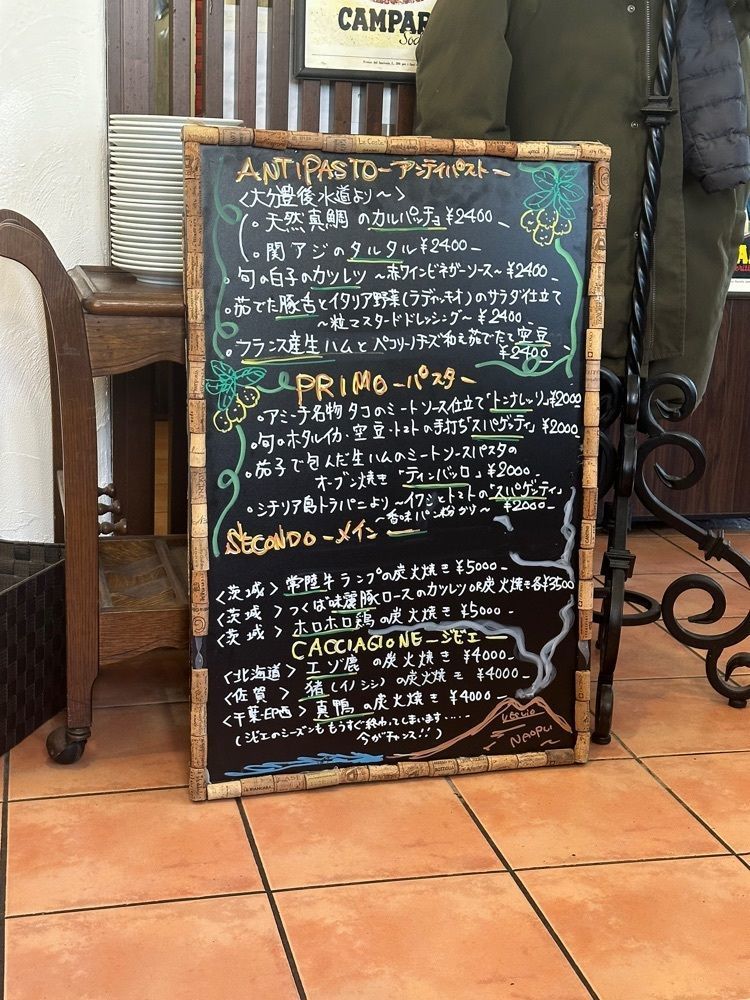 CAMPAR
Soda
ANTIPASTO-アンティパスト-
〈大分豊後水道より〜〉
。天然真鯛のカルパッチョ¥2400-
。関アジのタルタル¥2400-
。旬の白子のカツレツ〜赤ワインビネガーソース〜¥2400-
。茹でた豚舌とイタリア野菜(ラディッキオ)のサラダ仕立て
〜粒マスタードドレッシング〜 ¥2400-
。フランス産生ハムとペコリーノチーズ和え茹でたて空豆
¥2400-
PRIMO-パスター
。アミーチ名物タコのミートソース仕立て「トンナレッリ」¥2000-
。旬のホタルイカ・空豆・トマトの手打ち「スパゲッティ」¥2000-
。茄子で包んだ生ハムのミートソースパスタの
オーブン焼き「ティンバッロ」¥2000-
。シチリア島トラパニより〜イワシとトマトの「スパゲッティ」
〜香味パン粉かり〜 ¥2000-
SECONDO-メイン
〈茨城〉常陸牛ランプの炭火焼き¥5000-
〈茨城〉つくば味麗豚ロースのカツレツOR炭火焼き各¥3500
〈茨城〉ホロホロ鶏の炭火焼き¥5000-
CACCIAGIONE-ジビエ-
〈北海道〉エゾ鹿の炭火焼き¥4000-
〈佐賀〉猪(イノシシ)の炭火焼き¥4000-
〈千葉・印西〉真鴨の炭火焼き¥4000-
(ジビエのシーズンももうすぐ終わってしまいます....
今がチャンス!!)
NAOPLI